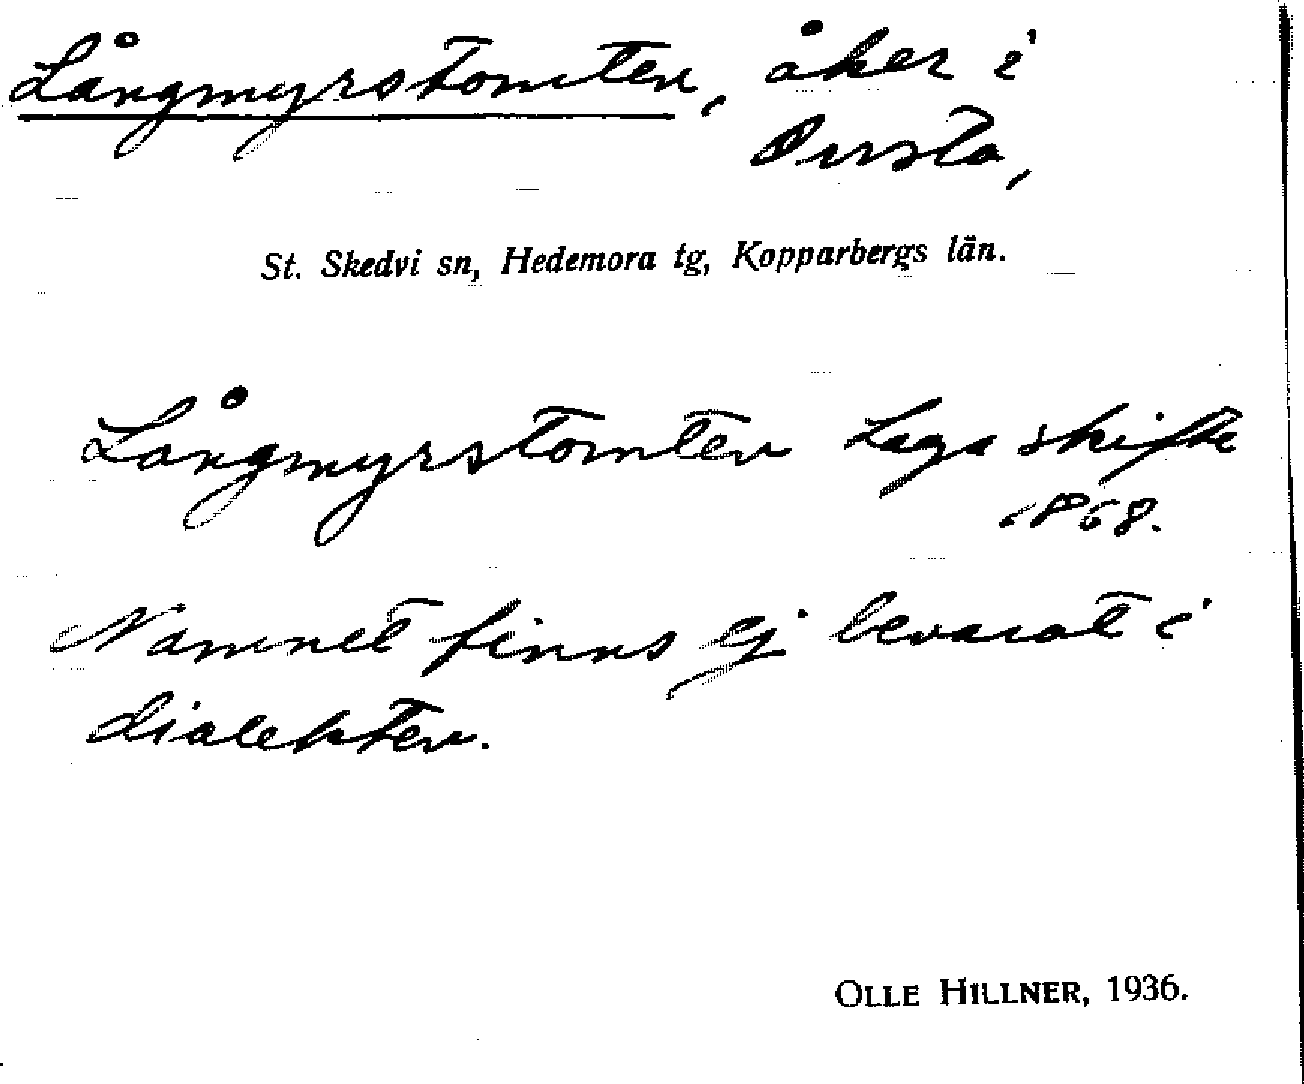 Långmyrstomten, åker i
Pursta,
St. Skedvi sn, Hedemora tg, Kopparbergs län.
Långmyrstomten Laga skifte
1868.
Namnet finns ej bevarat i
dialekten.
OLLE HILLNER, 1936.